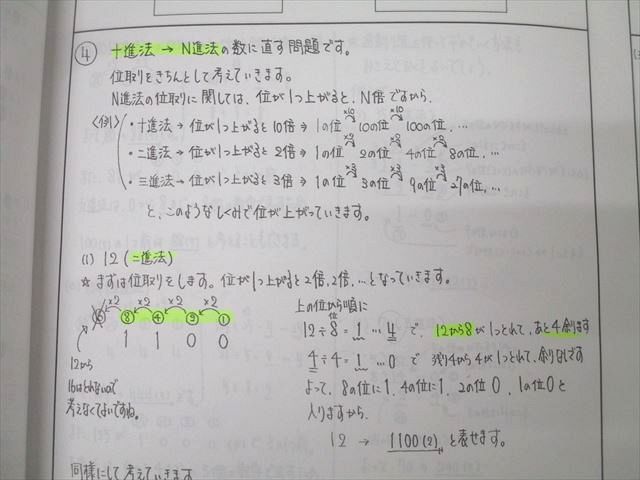 ④ 十進法 → N進法の数に直す問題です。
位取りをきちんとして考えていきます。
N進法の位取りに関しては、位が1つ上がると、N倍ですから、
〈例〉
・十進法 → 位が1つ上がると10倍 → 1の位 ×10 10の位 ×10 100の位, …
・二進法 → 位が1つ上がると2倍 → 1の位 ×2 2の位 ×2 4の位 ×2 8の位, …
・三進法 → 位が1つ上がると3倍 → 1の位 ×3 3の位 ×3 9の位 ×3 27の位, …
と、このようなしくみで位が上がっていきます。
(1) 12 (二進法)
★ まずは位取りをします。位が1つ上がると2倍, 2倍, …となっていきます。
×2 ×2 ×2 ×2
⑯ ⑧ ④ ② ①
1 1 0 0
12から
16はとれないので
考えなくてよいですね。
上の位から順に
12÷8位 = 1 … 4 で、12から8が1つとれて、あと4余ります
4÷4 = 1 … 0 で 残り4から4が1つとれて、余りなしです
よって、8の位に1, 4の位に1, 2の位0, 1の位0と
入りますから、
12 → 1100(2) と表せます。
同様にして考えていきます